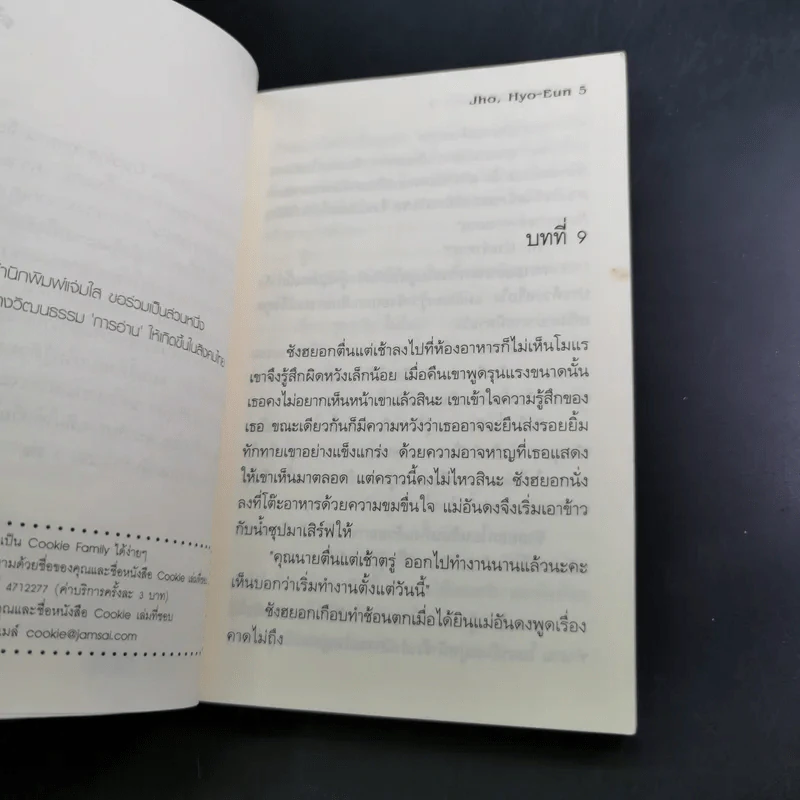 สำนักพิมพ์แจ่มใส ขอร่วมเป็นส่วนหนึ่ง
วัฒนธรรม 'การอ่าน' ให้เกิดขึ้นในสังคมไทย
เป็น Cookie Family ได้ง่ายๆ
ด้วยชื่อของคุณและชื่อหนังสือ Cookie
4712277 (ค่าบริการครั้งละ 3 บาท)
คุณและชื่อหนังสือ Cookie เล่มที่ชอบ
เมล์ cookie@jamsai.com
Jho, Hyo-Eun 5
บทที่ 9
ซังฮยอกตื่นแต่เช้าลงไปที่ห้องอาหารก็ไม่เห็นโมแร
เขาจึงรู้สึกผิดหวังเล็กน้อย เมื่อคืนเขาพูดรุนแรงขนาดนั้น
เธอคงไม่อยากเห็นหน้าเขาแล้วสินะ เขาเข้าใจความรู้สึกของ
เธอ ขณะเดียวกันก็มีความหวังว่าเธออาจจะยืนส่งรอยยิ้ม
ทักทายเขาอย่างแข็งแกร่ง ด้วยความอาจหาญที่เธอแสดง
ให้เขาเห็นมาตลอด แต่คราวนี้คงไม่ไหวสินะ ซังฮยอกนั่ง
ลงที่โต๊ะอาหารด้วยความขมขื่นใจ แม่อันดงจึงเริ่มเอาข้าว
กับน้ำซุปมาเสิร์ฟให้
"คุณนายตื่นแต่เช้าตรู่ ออกไปทำงานนานแล้วนะคะ
เห็นบอกว่าเริ่มทำงานตั้งแต่วันนี้"
ซังฮยอกเกือบทำช้อนตกเมื่อได้ยินแม่อันดงพูดเรื่อง
คาดไม่ถึง